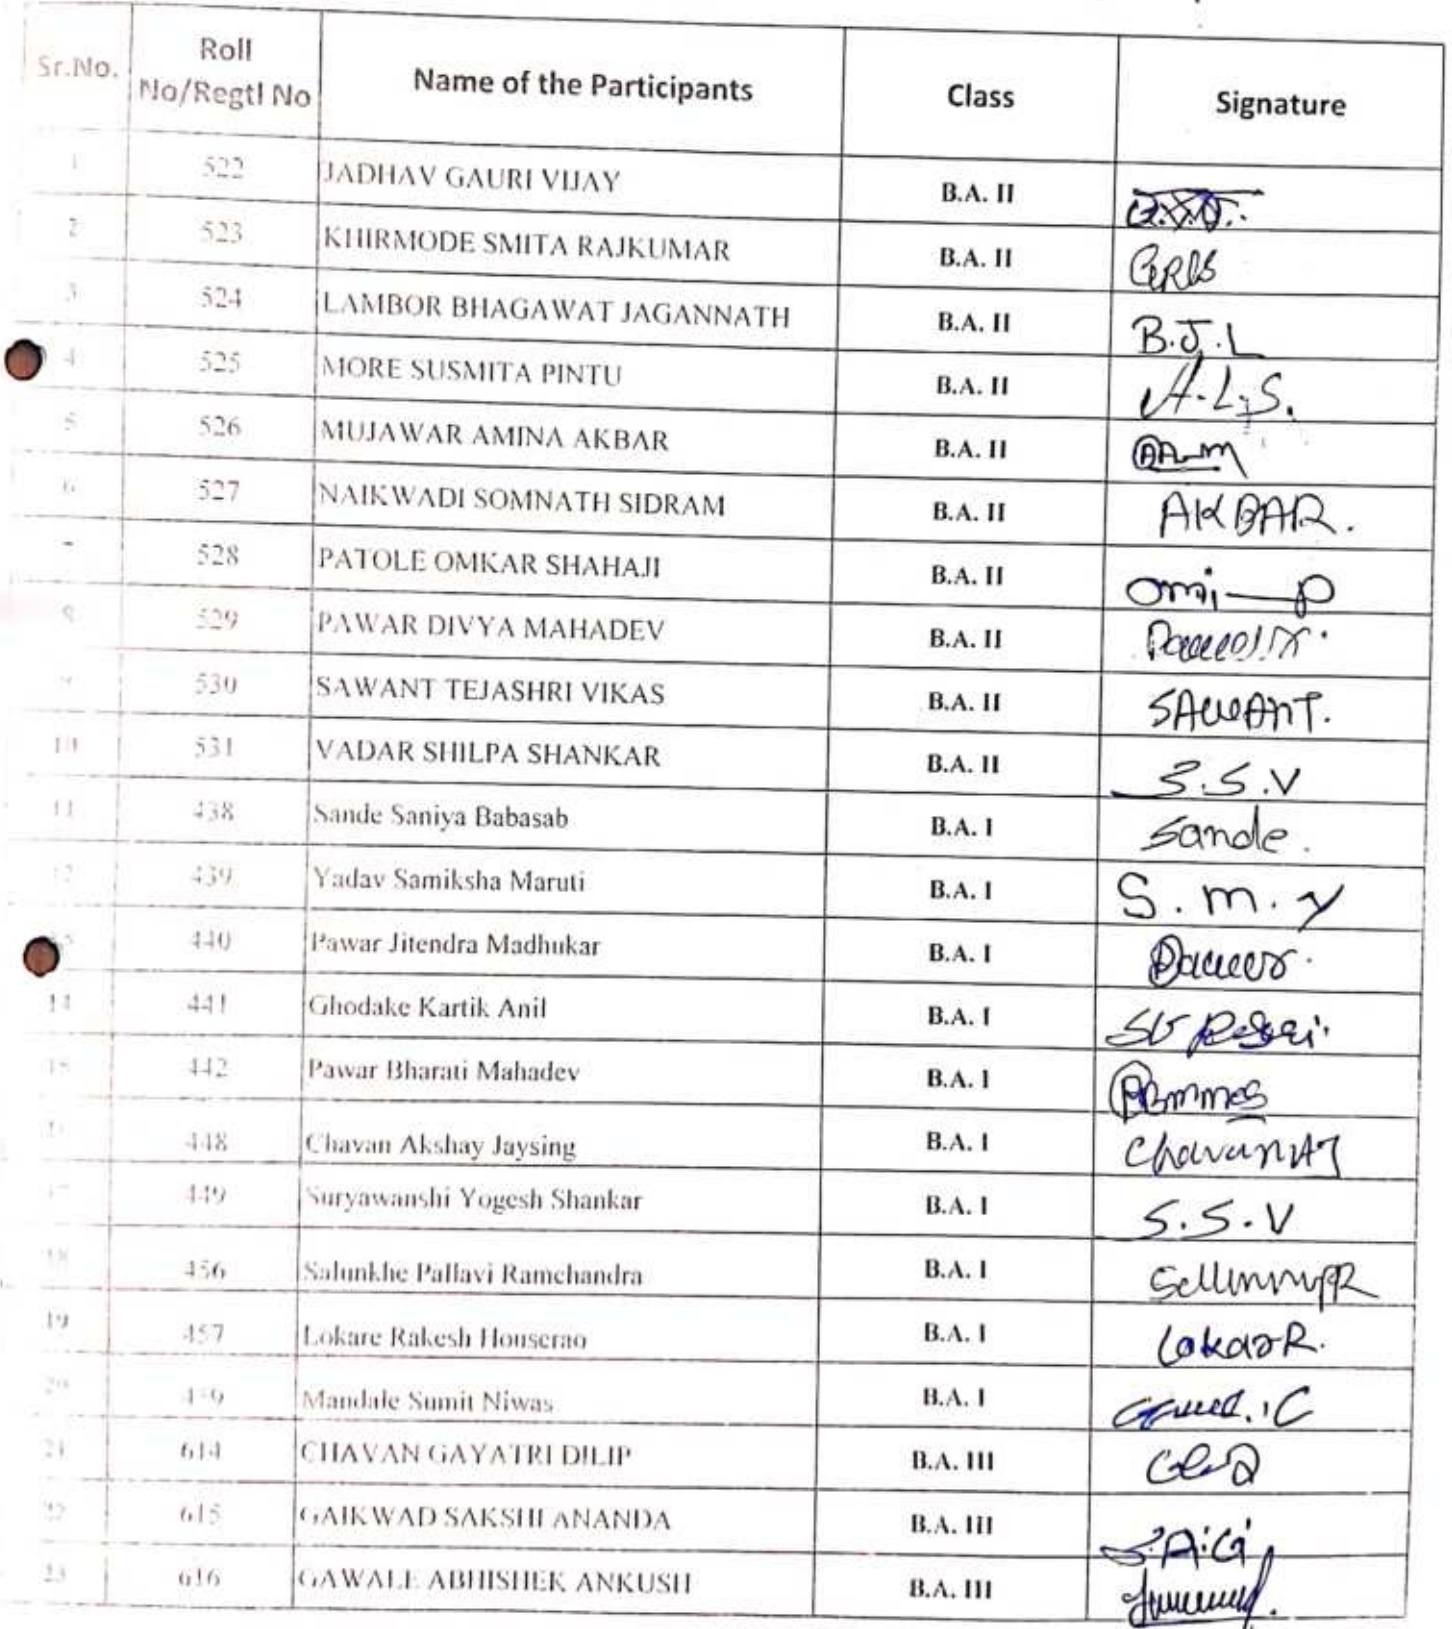 Sr.No. Roll No/Regtl No Name of the Participants Class Signature
1 522 JADHAV GAURI VIJAY B.A. II
2 523 KHIRMODE SMITA RAJKUMAR B.A. II
3 524 LAMBOR BHAGAWAT JAGANNATH B.A. II B.J.L
4 525 MORE SUSMITA PINTU B.A. II A.L.S.
5 526 MUJAWAR AMINA AKBAR B.A. II
6 527 NAIKWADI SOMNATH SIDRAM B.A. II AKBAR.
528 PATOLE OMKAR SHAHAJI B.A. II omi p
8 529 PAWAR DIVYA MAHADEV B.A. II
9 530 SAWANT TEJASHRI VIKAS B.A. II SAWANT.
10 531 VADAR SHILPA SHANKAR B.A. II S.S.V
11 438 Sande Saniya Babasab B.A. I Sande.
12 439 Yadav Samiksha Maruti B.A. I S.m.y
13 440 Pawar Jitendra Madhukar B.A. I Pawar.
14 441 Ghodake Kartik Anil B.A. I
15 442 Pawar Bharati Mahadev B.A. I
16 448 Chavan Akshay Jaysing B.A. I ChavanAJ
17 449 Suryawanshi Yogesh Shankar B.A. I S.S.V
18 456 Salunkhe Pallavi Ramchandra B.A. I
19 457 Lokare Rakesh Houserao B.A. I
20 459 Mandale Sumit Niwas B.A. I
21 614 CHAVAN GAYATRI DILIP B.A. III
22 615 GAIKWAD SAKSHI ANANDA B.A. III S.A.G
23 616 GAWALE ABHISHEK ANKUSH B.A. III